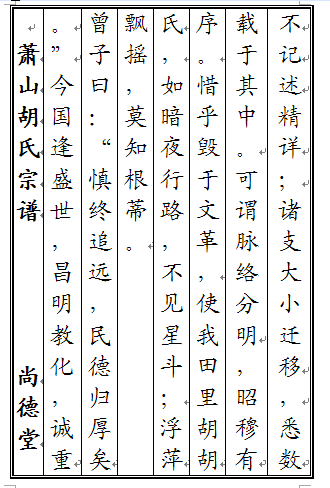 不记述精详；诸支大小迁移，悉数
载于其中。可谓脉络分明，昭穆有
序。惜乎毁于文革，使我田里胡胡
氏，如暗夜行路，不见星斗；浮萍
飘摇，莫知根蒂。
曾子曰：“慎终追远，民德归厚矣
。”今国逢盛世，昌明教化，诚重
萧山胡氏宗谱 尚德堂